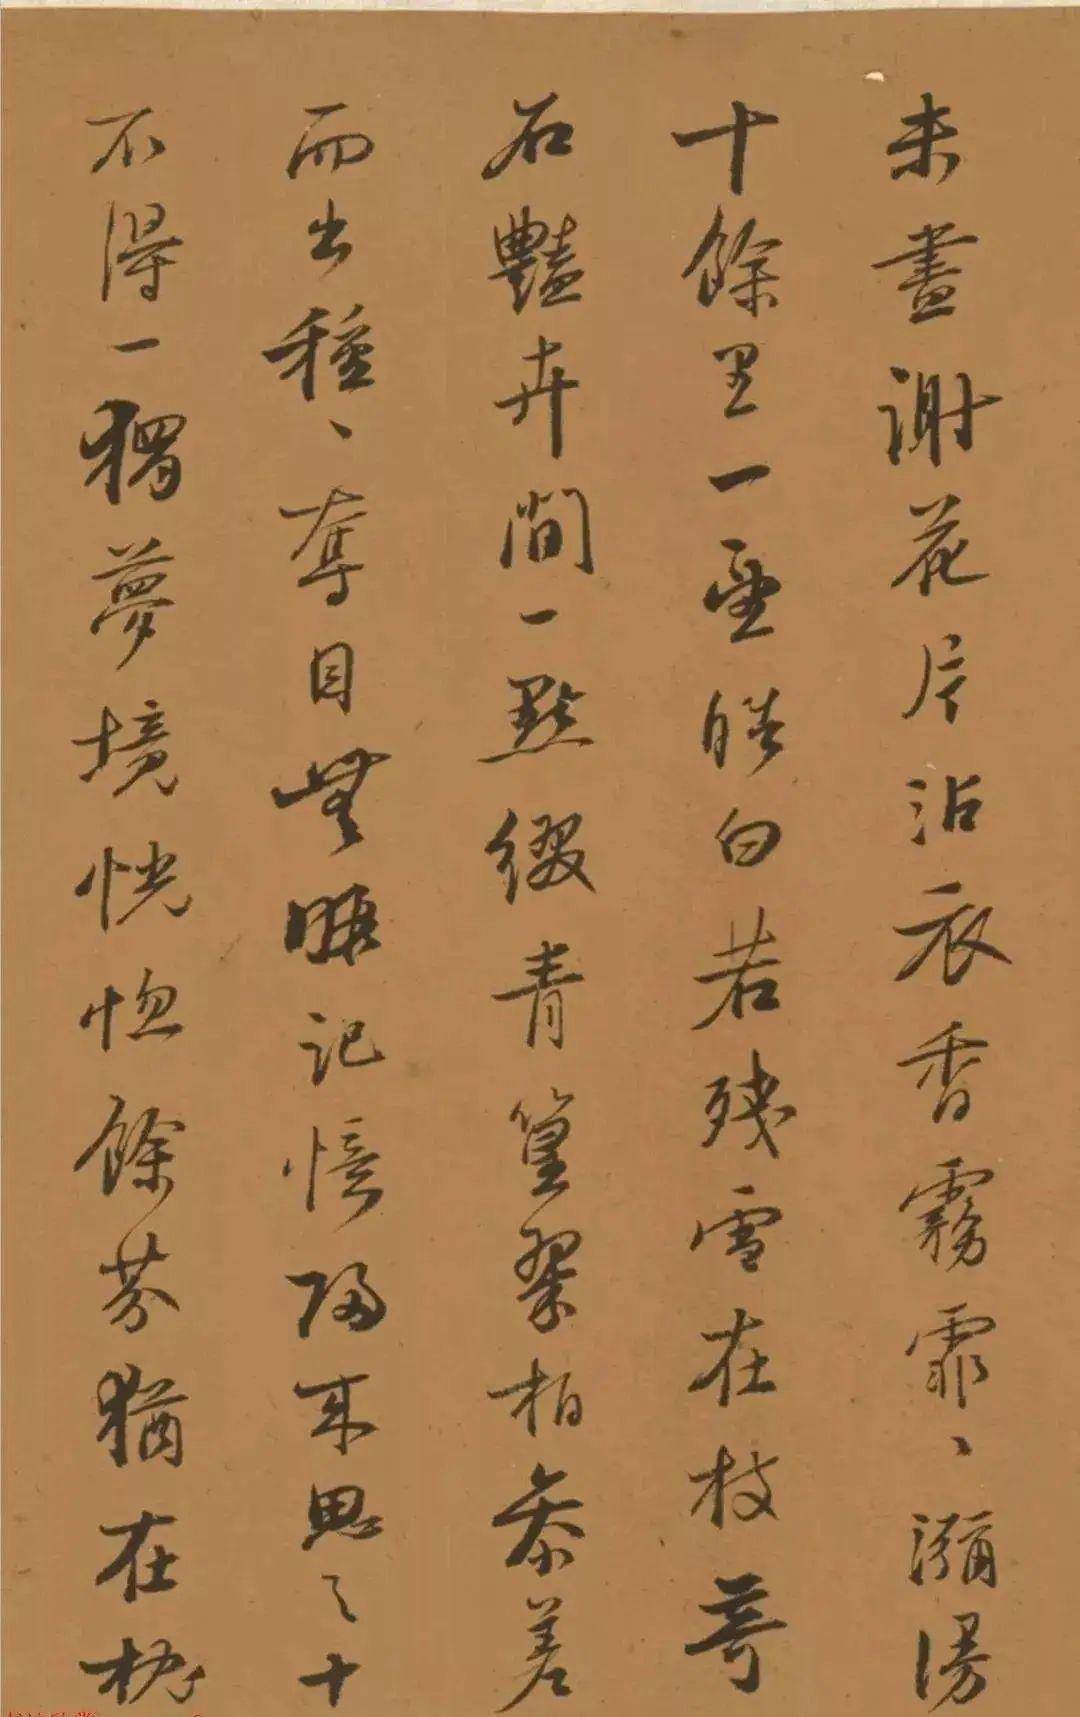 未盡謝花片沾衣香霧霏、瀰漫
十餘里一望皓白若殘雪在枝奇
石豔卉間一點綴青篁翠柏參差
而出種、奪目無暇記憶歸來思之十
不得一獨夢境恍惚餘芬猶在枕